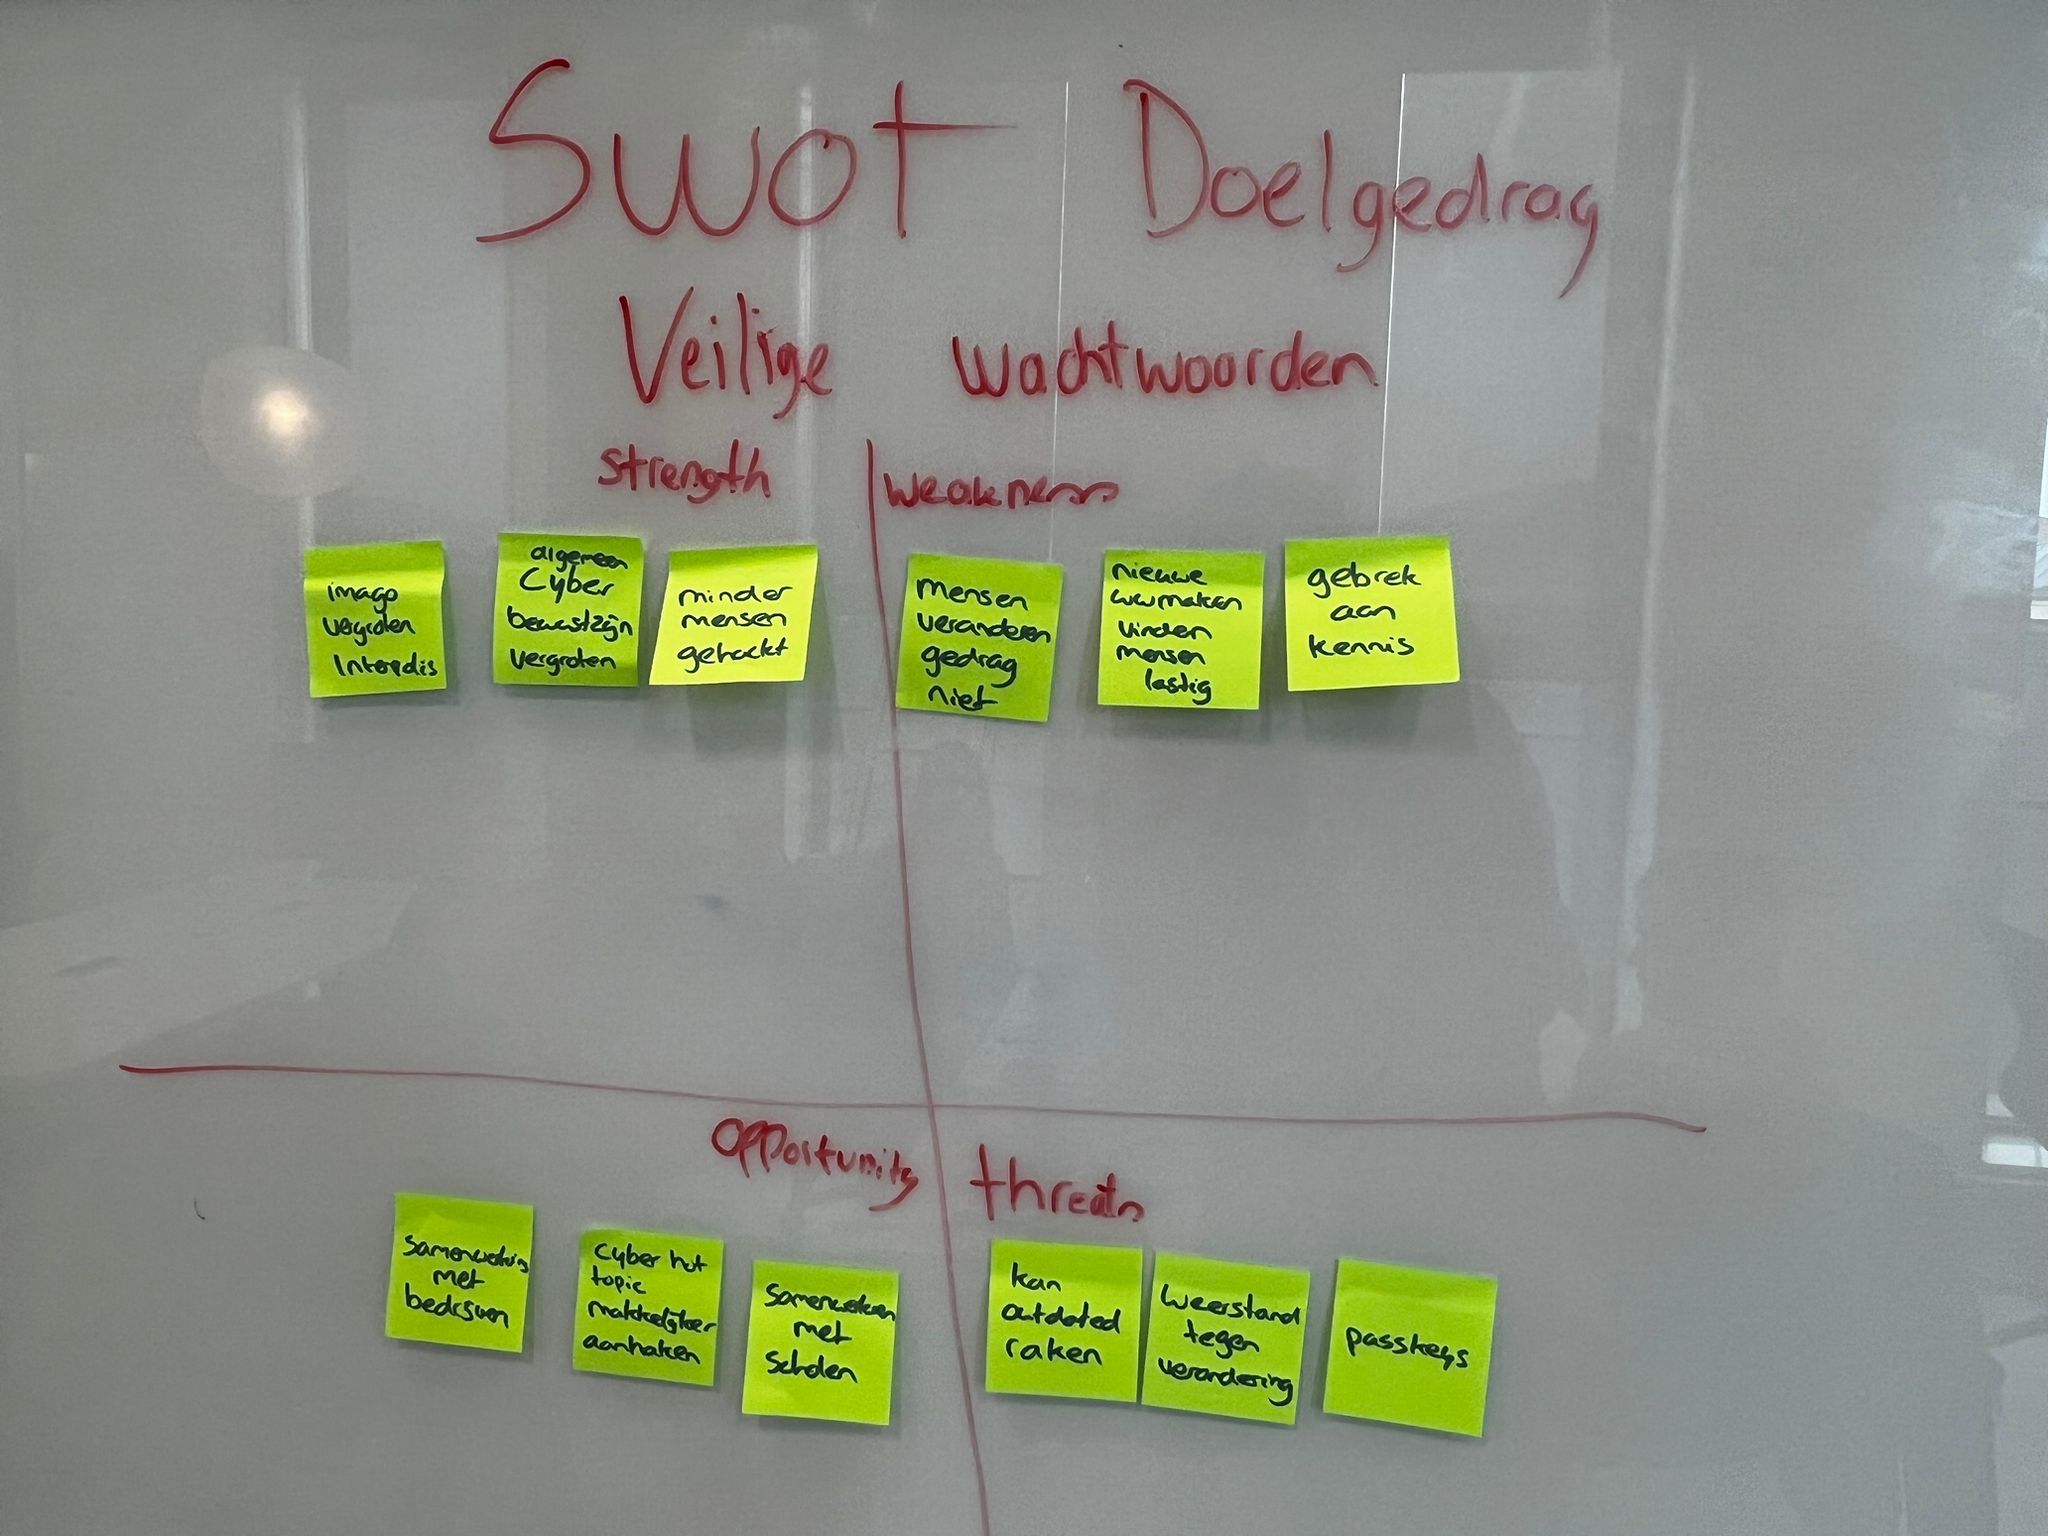 Swot Doelgedrag
Veilige wachtwoorden
strength
weakness
imago
vergroten
Interpolis
algemeen
Cyber
bewustzijn
vergroten
minder
mensen
gehackt
mensen
veranderen
gedrag
niet
nieuwe
ww maken
vinden
mensen
lastig
gebrek
aan
kennis
opportunity
threats
Samenwerking
met
bedrijven
Cyber hot
topic
makkelijker
aanhaken
Samenwerken
met
Scholen
kan
outdated
raken
Weerstand
tegen
verandering
passkeys